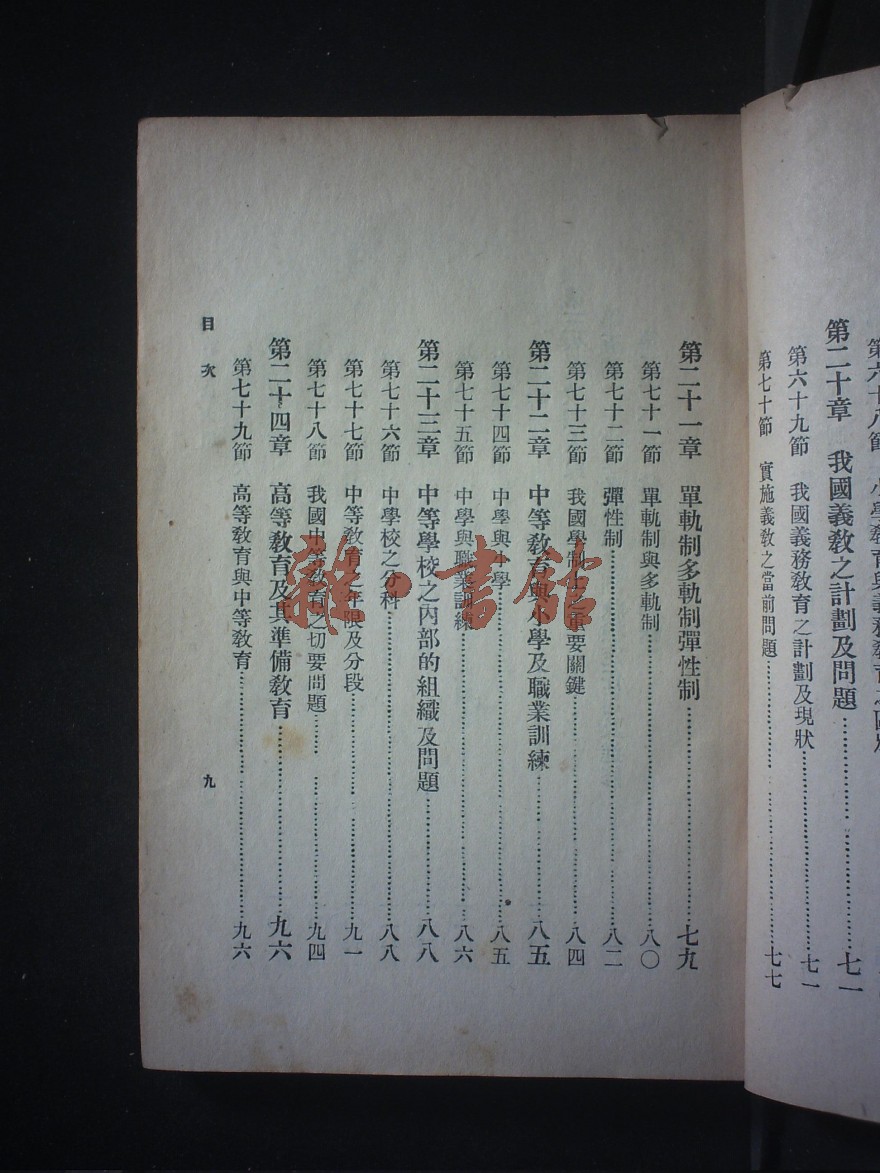 第二十章　我國義教之計劃及問題……七一
第六十九節　我國義務教育之計劃及現狀……七一
第七十節　實施義教之當前問題……七七
第二十一章　單軌制多軌制彈性制……七九
第七十一節　單軌制與多軌制……八〇
第七十二節　彈性制……八二
第七十三節　我國學制上之重要關鍵……八四
第二十二章　中等教育與小學及職業訓練……八五
第七十四節　中學與小學……八五
第七十五節　中學與職業訓練……八六
第二十三章　中等學校之內部的組織及問題……八八
第七十六節　中學校之分科……八八
第七十七節　中等教育年限及分段……九一
第七十八節　我國中等教育之切要問題……九四
第二十四章　高等教育及其準備教育……九六
第七十九節　高等教育與中等教育……九六
目次
九
雜·書館